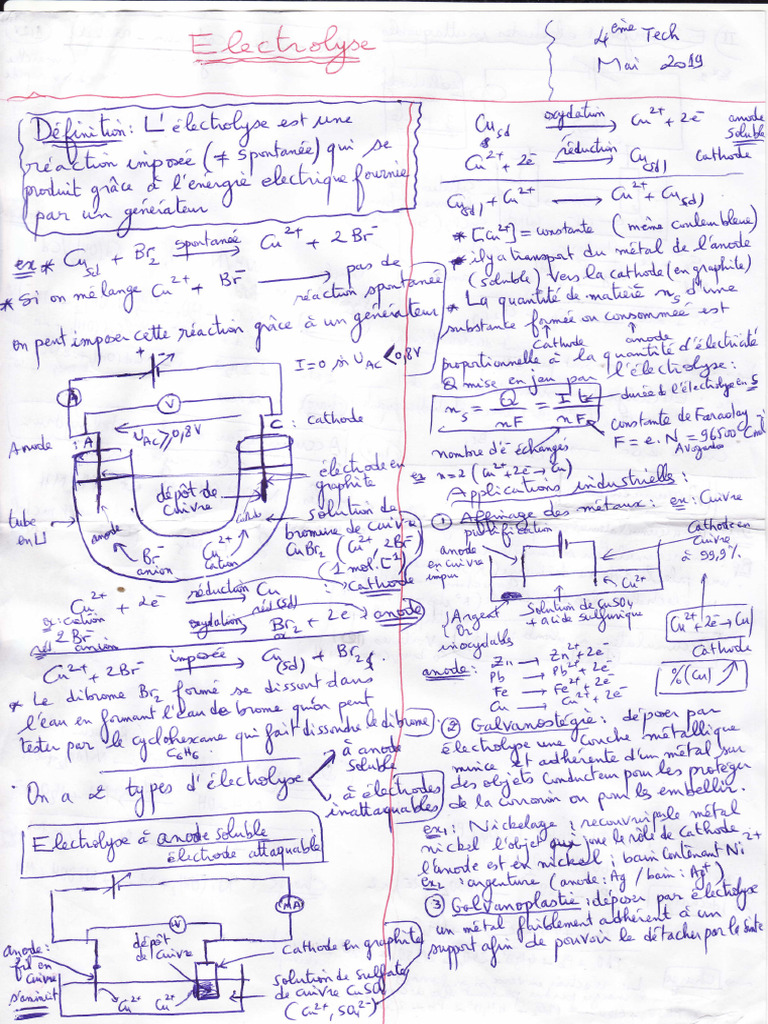 Electrolyse
4ème Tech
Mai 2019
Définition: L'électrolyse est une
réaction imposée (≠ spontanée) qui se
produit grâce à l'énergie electrique fournie
par un générateur
ex * Cu sd + Br2 spontanée → Cu2+ + 2Br-
* Si on mélange Cu2+ + Br- → pas de
réaction spontanée
on peut imposer cette réaction grâce à un générateur
I=0 si UAC < 0,8V
+ -
A
V
UAC ≥ 0,8V
Anode : A
C : Cathode
électrode en
graphite
dépôt de
cuivre
tube
en U
anode
cathode
Br-
anion
Cu2+
cation
solution de
bromure de cuivre
CuBr2 (Cu2+ 2Br-)
(1 mol.L-1)
Cu2+ + 2e- réduction → Cu (sd) : Cathode
ex: cation
2Br- oxydation → Br2 + 2e- : anode
anion
Cu2+ + 2Br- imposée → Cu (sd) + Br2
* Le dibrome Br2 formé se dissout dans
l'eau en formant l'eau de brome qu'on peut
tester par le cyclohexane qui fait dissoudre le dibrome.
C6H6
On a 2 types d'électrolyse
à anode
soluble
à électrodes
inattaquables
Electrolyse à anode soluble
électrode attaquable
V
MA
anode:
fil en
cuivre
s'amincit
dépôt
de cuivre
Cu2+ Cu2+
Cathode en graphite
solution de sulfate
de cuivre CuSO4
(Cu2+, SO42-)
Cu sd oxydation → Cu2+ + 2e- anode
soluble
&
Cu2+ + 2e- réduction → Cu (sd) cathode
Cu sd1 + Cu2+ → Cu2+ + Cu sd)
* [Cu2+] = constante (même couleur bleue)
* il y a transport du métal de l'anode
(soluble) vers la cathode (en graphite)
* La quantité de matière ns d'une
substance formée ou consommée est
cathode anode
proportionnelle à la quantité d'électricité
Q mise en jeu par l'électrolyse:
ns = Q/nF = I t/nF
durée de l'électrolyse en s
constante de Faraday
F = e. N = 96500 C mol-1
Avogadro
nombre d'é échangés
ex n=2 (Cu2+ + 2e- → Cu)
Applications industrielles:
1 Affinage des métaux: ex: Cuivre
purification
anode
en cuivre
impur
Cathode en
cuivre
à 99,9%
Cu2+
Solution de CuSO4
+ acide sulfurique
Argent
Or
inoxydables
Cu2+ + 2e- → Cu
Cathode
%(Cu) ↗
anode: Zn → Zn2+ + 2e-
Pb → Pb2+ + 2e-
Fe → Fe2+ + 2e-
Cu → Cu2+ + 2e-
2 Galvanostégie: déposer par
électrolyse une couche métallique
mince et adhérente d'un métal sur
des objets conducteur pour les protéger
de la corrosion ou pour les embellir.
ex1: Nickelage: recouvrir par le métal
nickel l'objet qui joue le rôle de cathode
l'anode est en nickel; bain contenant Ni2+
ex2: argenture (anode: Ag / bain: Ag+)
3 Galvanoplastie: déposer par électrolyse
un métal faiblement adhérent à un
support afin de pouvoir le détacher par la suite